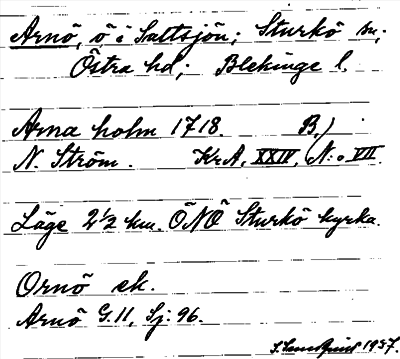 Arnö, ö i Saltsjön; Sturkö sn;
Östra hd; Blekinge l.
Arna holm 1718. B.)
N. Ström. Kr A, XXIV, N:o VII.
Läge 2 1/2 km. ÖNÖ Sturkö kyrka.
Ornö ek.
Arnö G. 11, Sj: 96.
1937